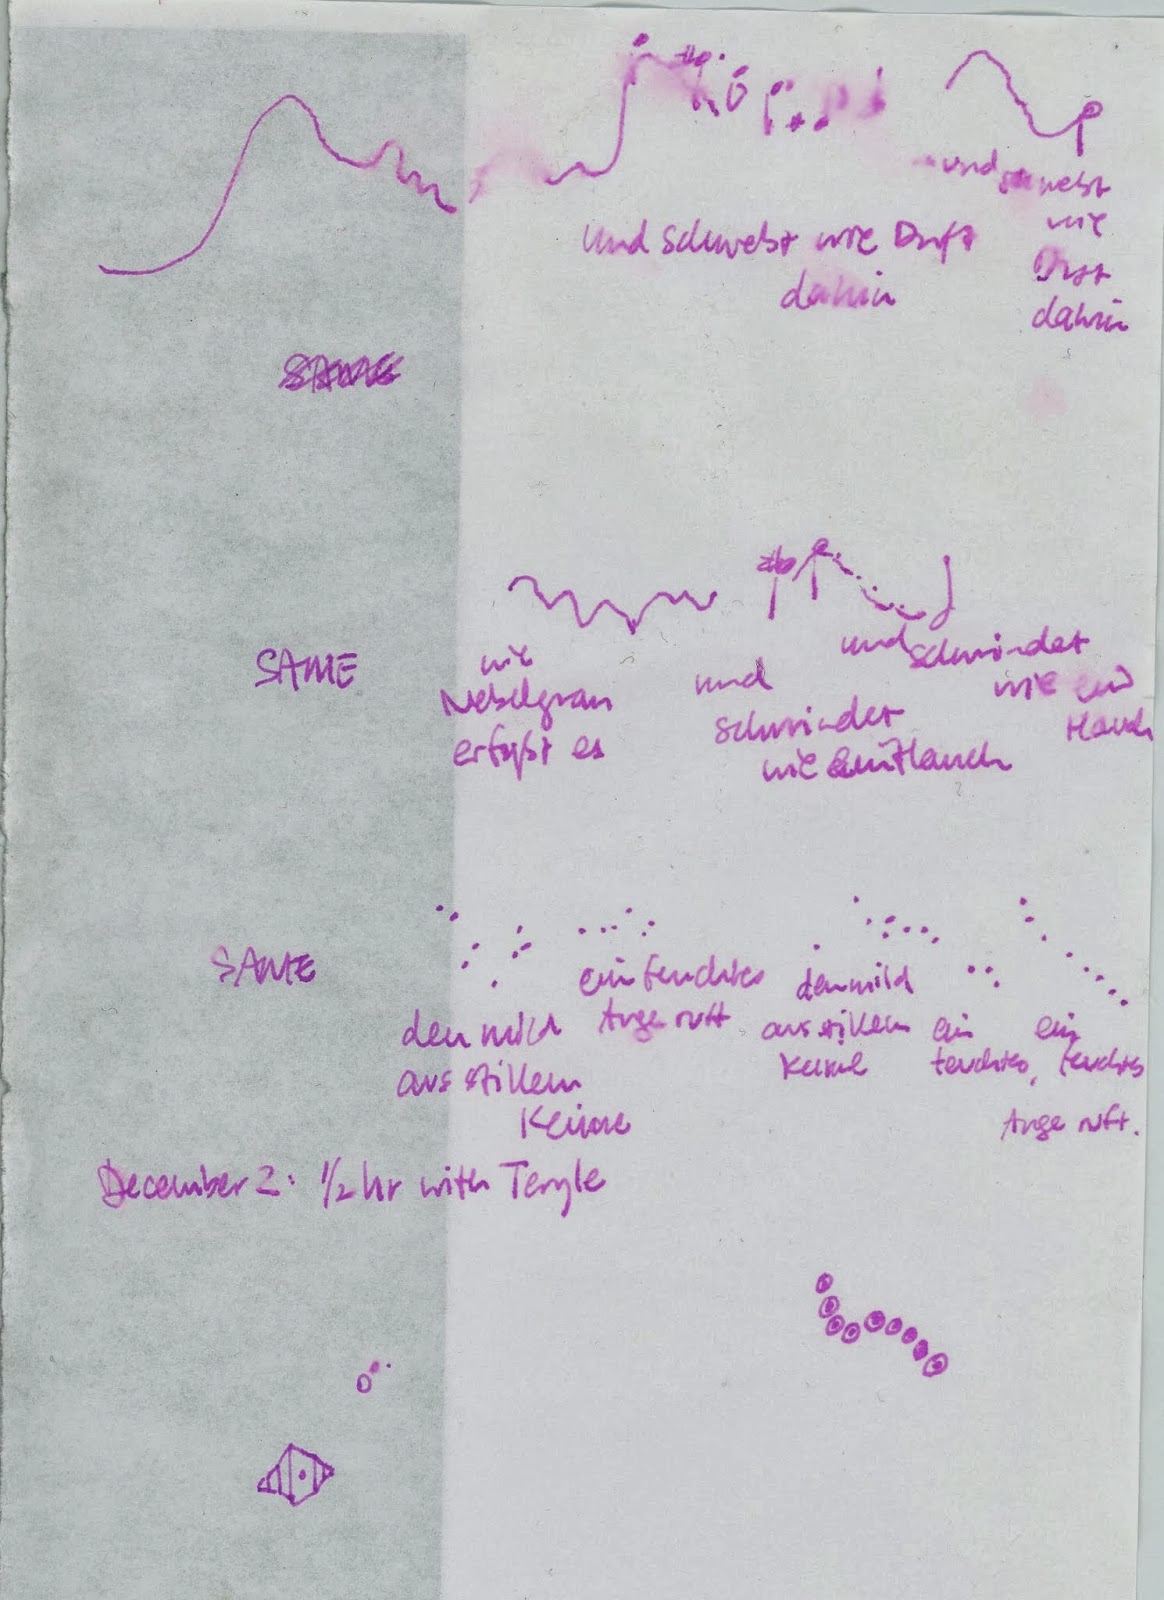 und schwebt
wie
Duft
dahin
und schwebt wie Duft
dahin
SAME
SAME
wie
Nebelgrau
erfaßt es
und
schwindet
wie ein Hauch
und schwindet
wie ein
Hauch
SAME
den mild
aus stillem
Keime
ein feuchtes
Auge ruft
den mild
aus stillem
Keime
ein
feuchtes,
ein
feuchtes
Auge ruft.
December 2: 1/2 hr with